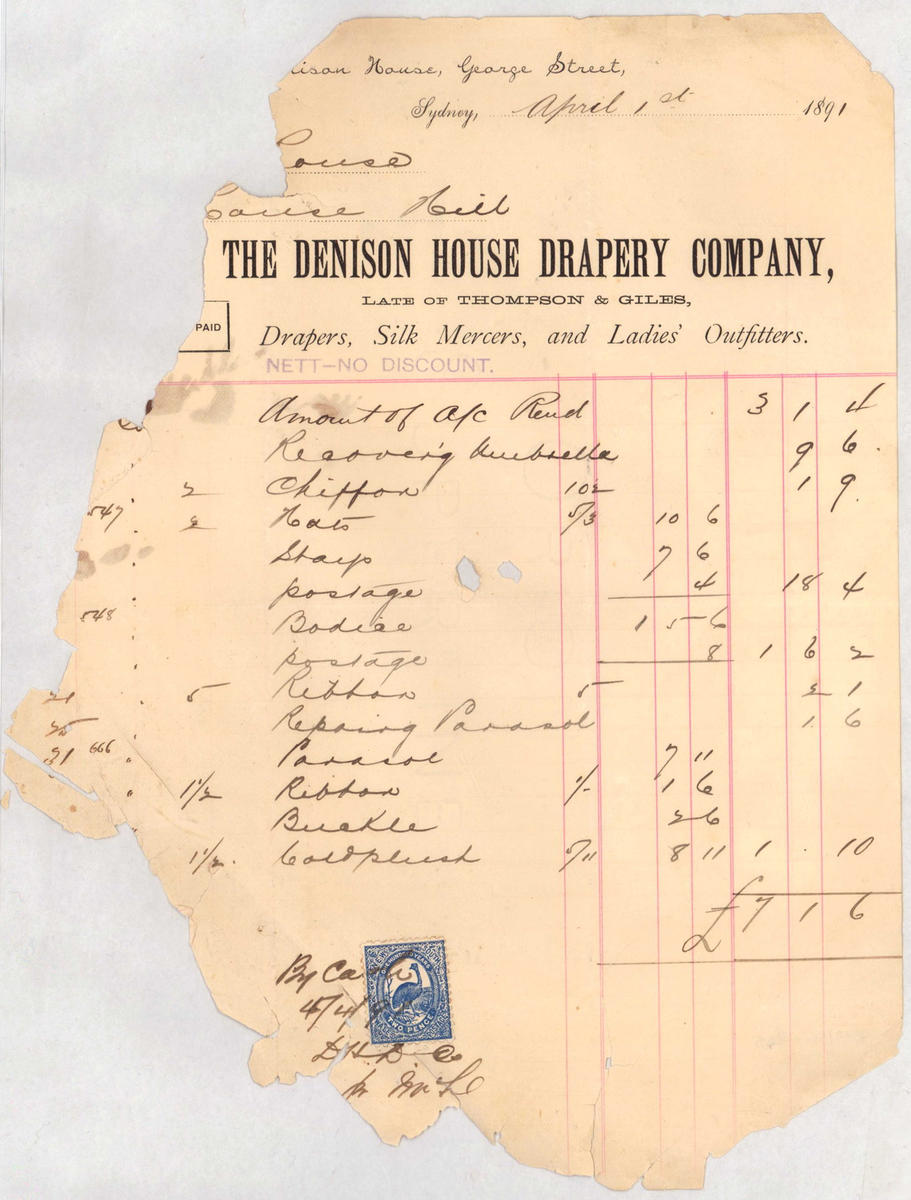 ison House, George Street,
Sydney, April 1st 1891
ouse
ouse Hill
THE DENISON HOUSE DRAPERY COMPANY,
LATE OF THOMPSON & GILES,
PAID
Drapers, Silk Mercers, and Ladies' Outfitters.
NETT–NO DISCOUNT.
Amount of a/c Rend 3 1 4
Recover'g Umbrella 9 6
2 Chiffon 10½ 1 9
547 2 Hats 5/3 10 6
7 6
postage 4 18 4
548 Bodice 1 5 6
postage 8 1 6 2
21 5 Ribbon 5 2 1
25 Repairing Parasol 1 6
31 666 Parasol 7 11
1½ Ribbon 1/- 1 6
Buckle 2 6
1½ Goldplush 5/11 8 11 1 . 10
£7 1 6
By Cash
4/4/91
ONE HUNDRED YEARS
TWO PENCE
D.H.D. Co